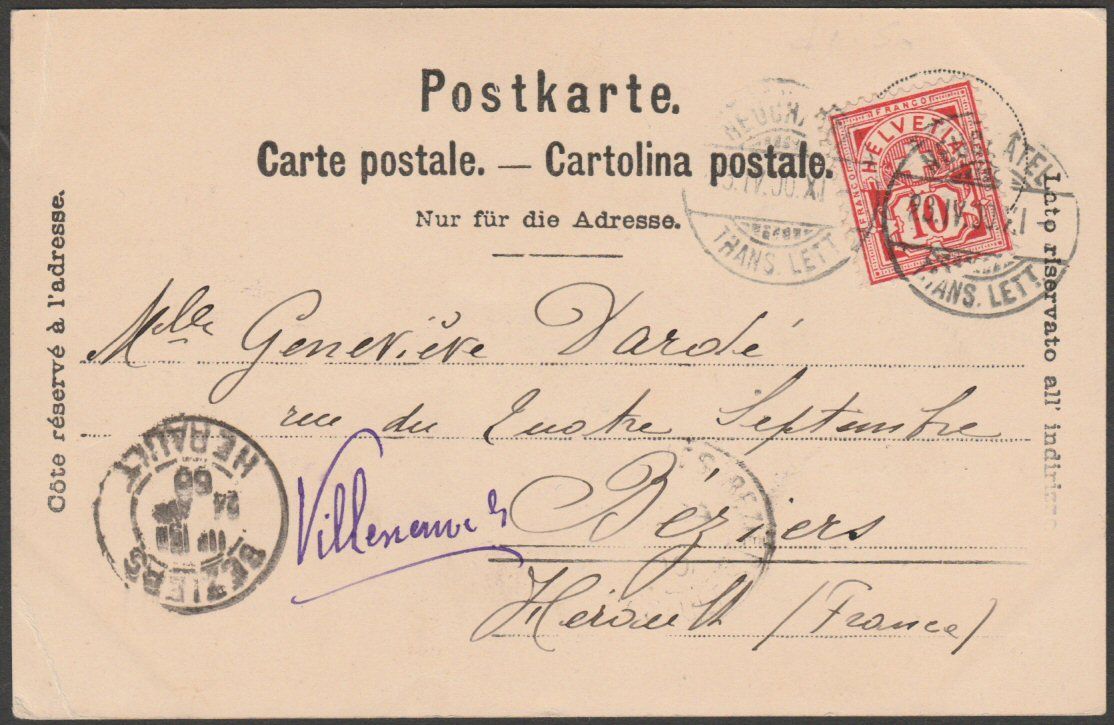 Postkarte.
Carte postale. — Cartolina postale.
Nur für die Adresse.
Côte réservé à l'adresse.
Lato riservato all' indirizzo
FRANCO
HELVETIA
FRANCO
10
NEUCH
IV.00.XI
TRANS. LETT.
ATEL
23.IV.00.XI
TRANS. LETT.
Mlle Geneviève Dardé
rue du Quatre Septembre
Villeneuve
Béziers
Hérault (France)
BEZIERS
HERAULT
24
BEZIE